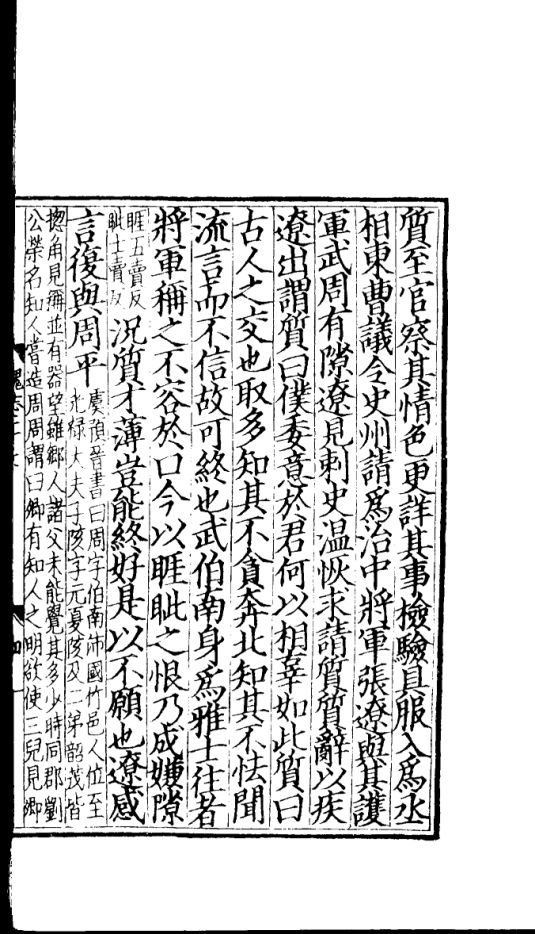 質至官察其情色更詳其事檢驗具服入爲丞
相東曹議令史州請爲治中將軍張遼與其護
軍武周有隙遼見刺史温恢求請質質辭以疾
遼出謂質曰僕委意於君何以相辜如此質曰
古人之交也取多知其不貪奔北知其不怯聞
流言而不信故可終也武伯南身爲雅士往者
將軍稱之不容於口今以睚眦之恨乃成嫌隙
睚五賣反
眦士賣反
況質才薄豈能終好是以不願也遼感
言復與周平
虞預晉書曰周字伯南沛國竹邑人位至
光禄大夫子陔字元夏陔及二弟韶茂皆
揔角見稱並有器望雖鄉人諸父未能覺其多少時同郡劉
公榮名知人嘗造周周謂曰卿有知人之明欲使三兒見卿